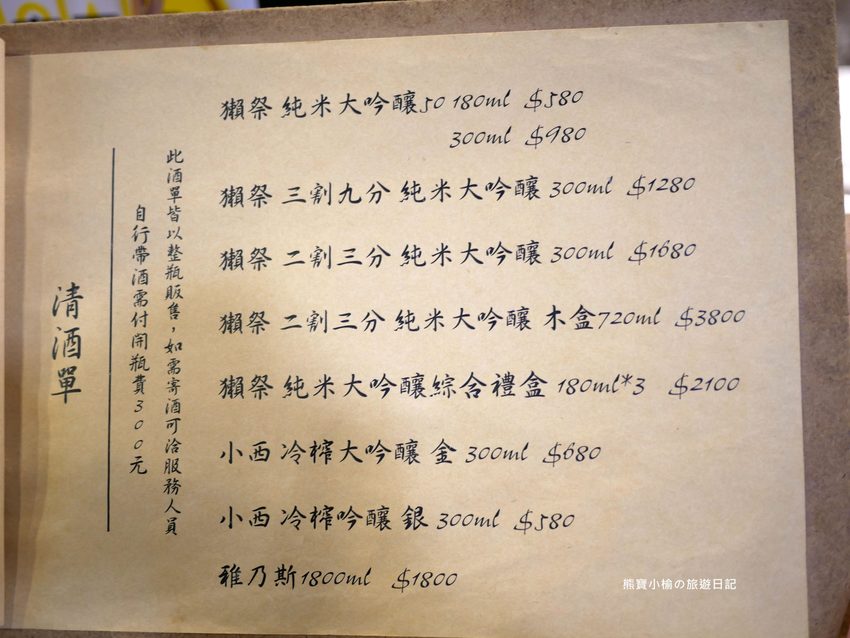 清酒單
此酒單皆以整瓶販售，如需寄酒可洽服務人員
自行帶酒需付開瓶費300元
獺祭 純米大吟釀50 180ml $580
300ml $980
獺祭 三割九分 純米大吟釀 300ml $1280
獺祭 二割三分 純米大吟釀 300ml $1680
獺祭 二割三分 純米大吟釀 木盒720ml $3800
獺祭 純米大吟釀綜合禮盒 180ml*3 $2100
小西 冷榨大吟釀 金 300ml $680
小西 冷榨吟釀 銀 300ml $580
雅乃斯1800ml $1800
熊寶小榆の旅遊日記